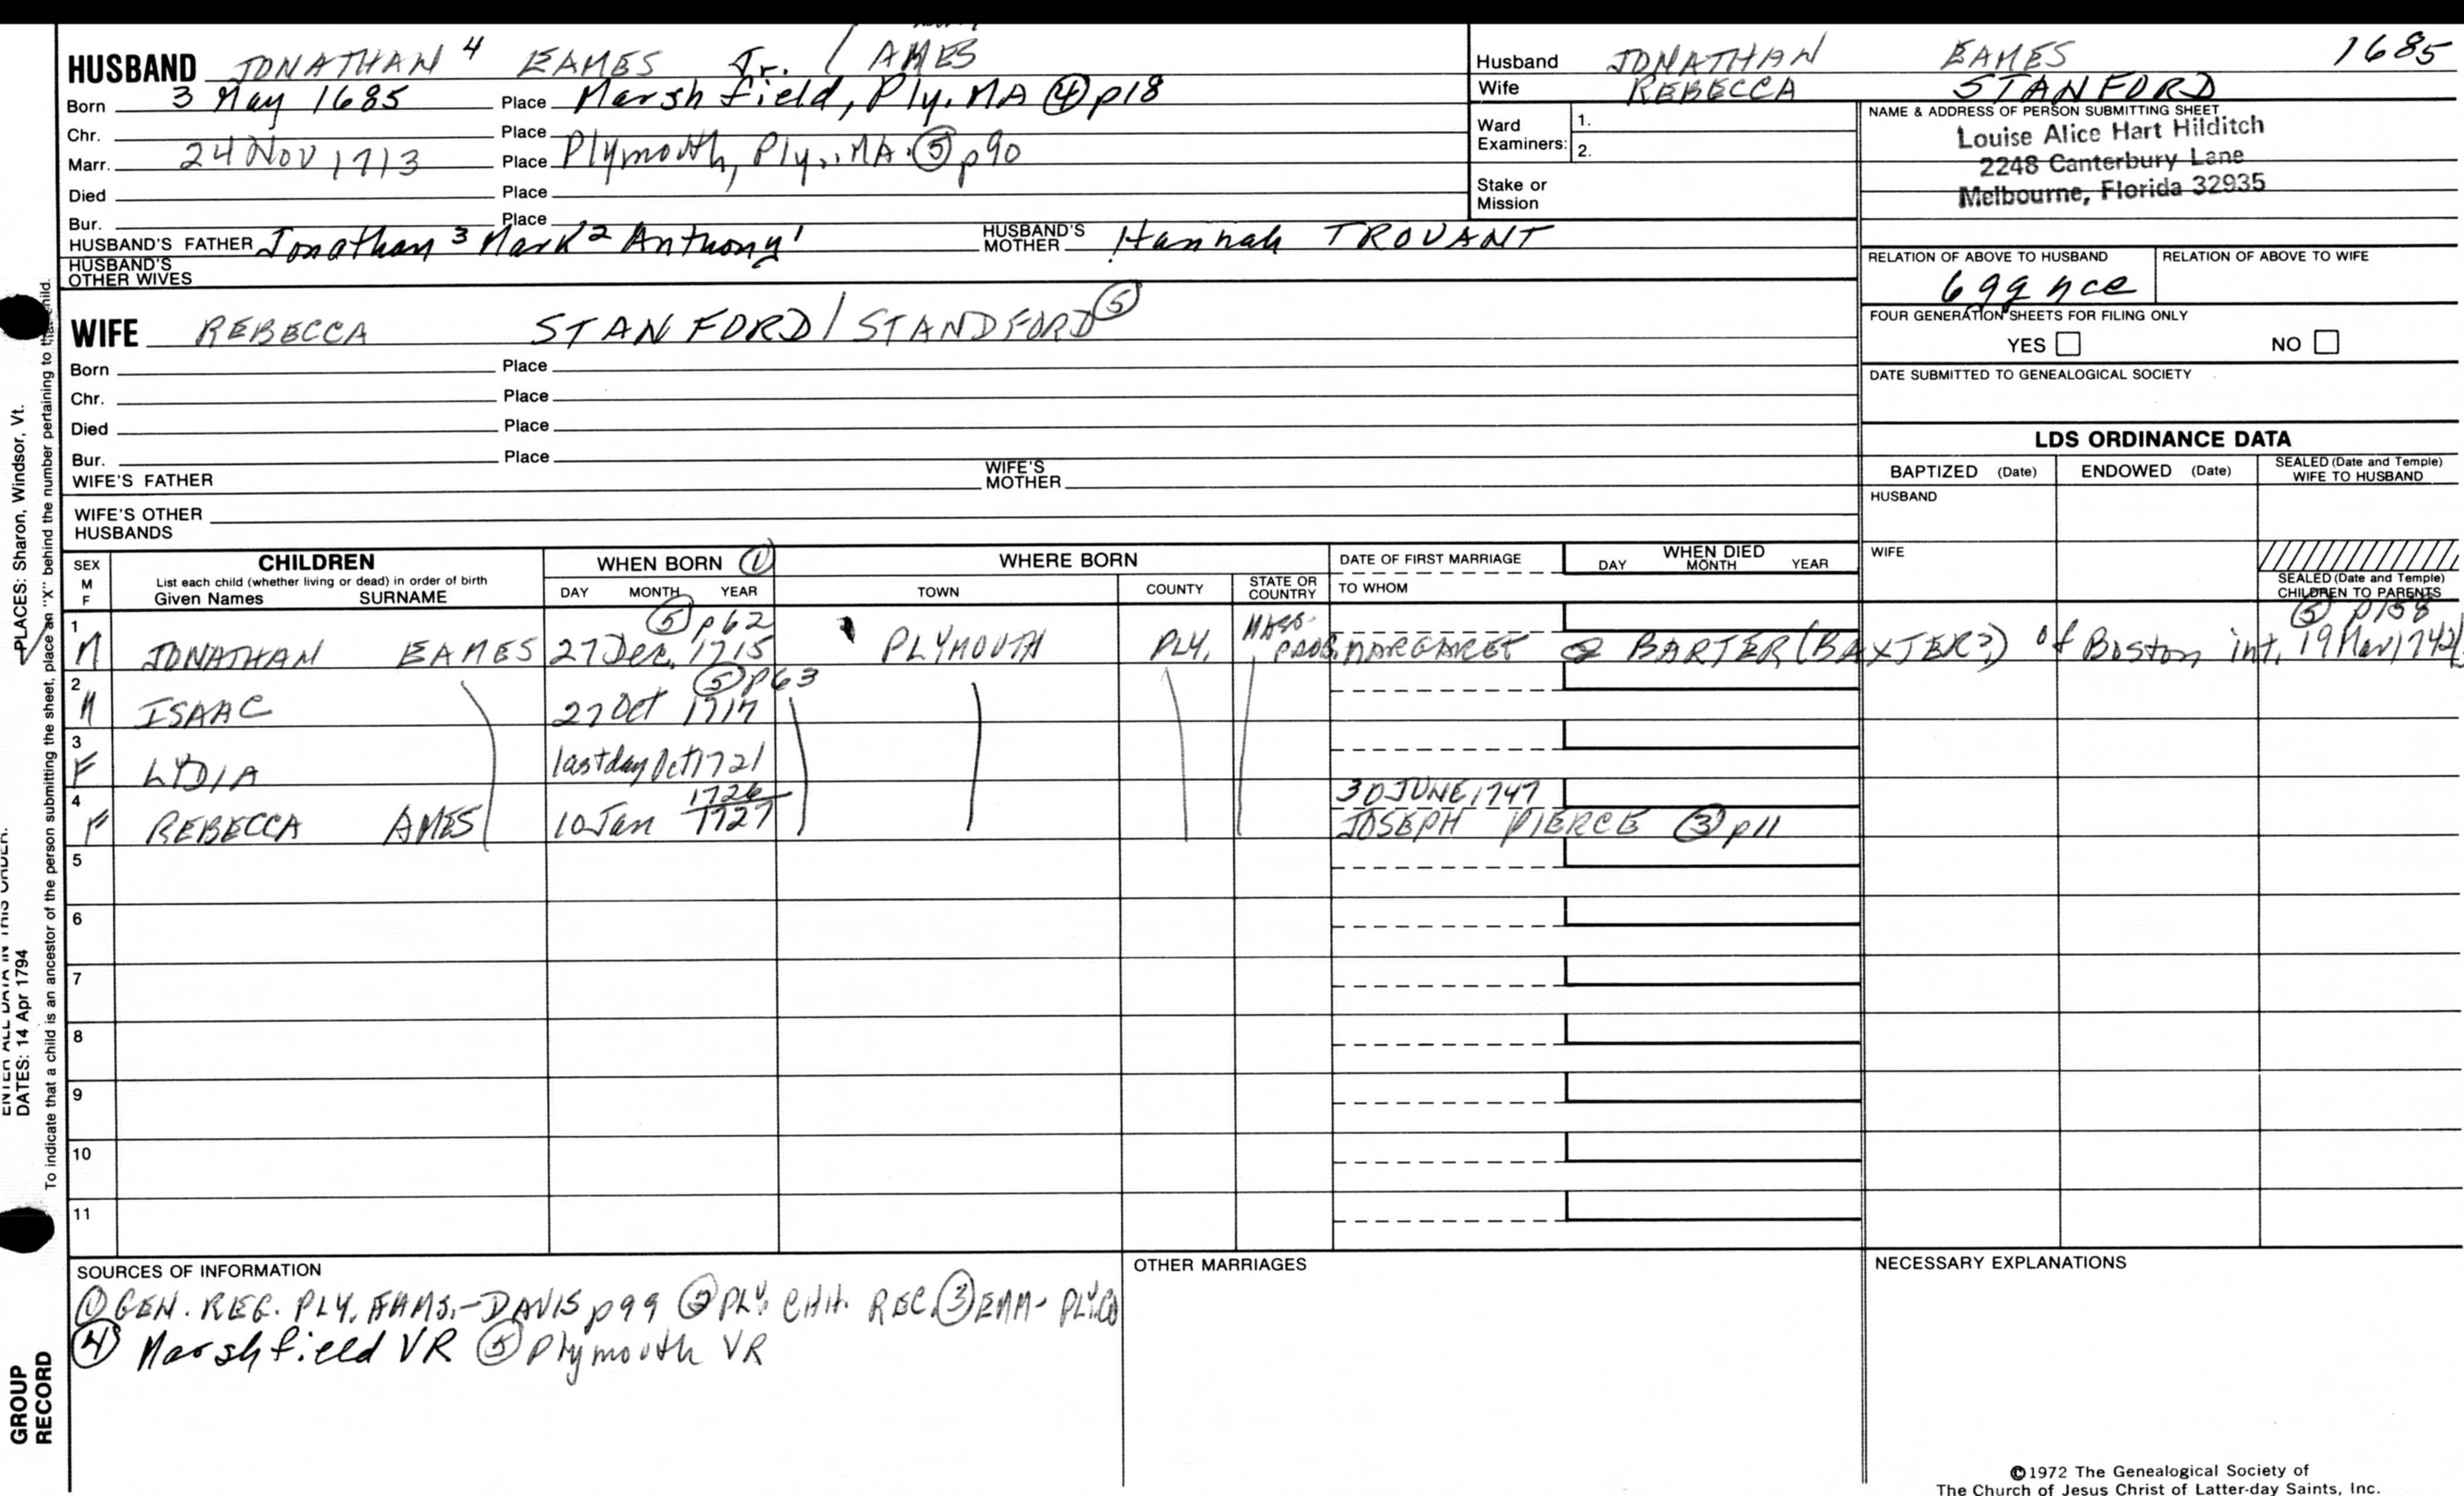 HUSBAND JONATHAN 4 EAMES Jr. / AMES
Born 3 May 1685 Place Marshfield, Ply. MA ④ p18
Chr. Place
Marr. 24 Nov 1713 Place Plymouth, Ply., MA. ⑤ p90
Died Place
Bur. Place
HUSBAND'S FATHER Jonathan 3 Mark 2 Anthony 1 HUSBAND'S MOTHER Hannah TROUANT
HUSBAND'S OTHER WIVES
Husband JONATHAN EAMES 1685
Wife REBECCA STANFORD
Ward Examiners: 1.
2.
Stake or Mission
NAME & ADDRESS OF PERSON SUBMITTING SHEET
Louise Alice Hart Hilditch
2248 Canterbury Lane
Melbourne, Florida 32935
RELATION OF ABOVE TO HUSBAND RELATION OF ABOVE TO WIFE
6gg nce
FOUR GENERATION SHEETS FOR FILING ONLY
YES NO
DATE SUBMITTED TO GENEALOGICAL SOCIETY
WIFE REBECCA STANFORD / STANDFORD ⑤
Born Place
Chr. Place
Died Place
Bur. Place
WIFE'S FATHER WIFE'S MOTHER
WIFE'S OTHER HUSBANDS
LDS ORDINANCE DATA
BAPTIZED (Date) ENDOWED (Date) SEALED (Date and Temple) WIFE TO HUSBAND
HUSBAND
WIFE
SEALED (Date and Temple) CHILDREN TO PARENTS
SEX M F
CHILDREN
List each child (whether living or dead) in order of birth
Given Names SURNAME
WHEN BORN ①
DAY MONTH YEAR
WHERE BORN
TOWN COUNTY STATE OR COUNTRY
DATE OF FIRST MARRIAGE
TO WHOM
WHEN DIED
DAY MONTH YEAR
⑤ p62 ⑤ p158
1 M JONATHAN EAMES 27 Dec. 1715 PLYMOUTH PLY. MASS. MARGARET BARTER (BAXTER?) of Boston int. 19 Mar 1742/
⑤ p63
2 M ISAAC 27 Oct 1717
3 F LYDIA last day Oct 1721
4 F REBECCA AMES 10 Jan 1726/1727 30 JUNE 1747
JOSEPH PIERCE ③ p11
5
6
7
8
9
10
11
SOURCES OF INFORMATION
① GEN. REG. PLY. FAMS. - DAVIS p99 ② PLY. CHH. REC. ③ EMM - PLY. CO
④ Marshfield VR ⑤ Plymouth VR
OTHER MARRIAGES
NECESSARY EXPLANATIONS
©1972 The Genealogical Society of
The Church of Jesus Christ of Latter-day Saints, Inc.
PLACES: Sharon, Windsor, Vt.
DATES: 14 Apr 1794
To indicate that a child is an ancestor of the person submitting the sheet, place an "X" behind the number pertaining to that child.
GROUP
RECORD